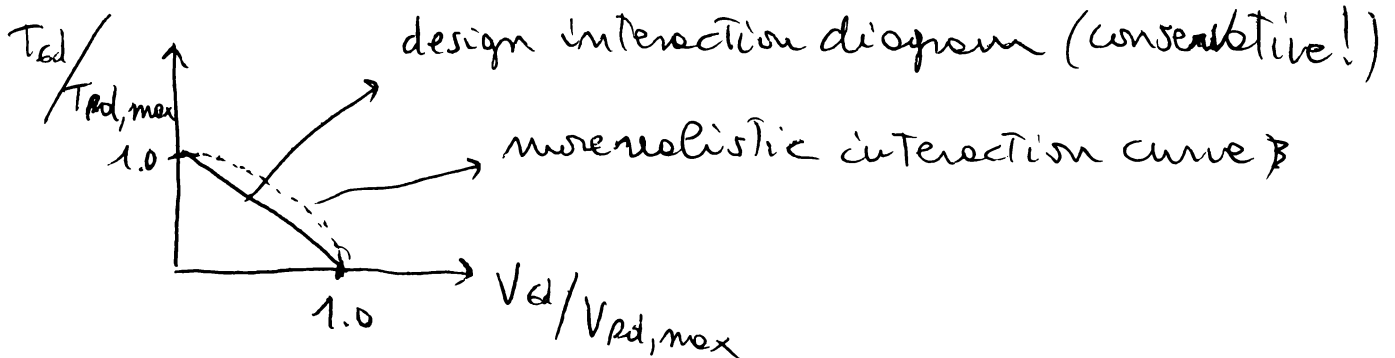 TEd/TRd,max
design interaction diagram (conservative!)
1.0
more realistic interaction curve
1.0
VEd/VRd,max